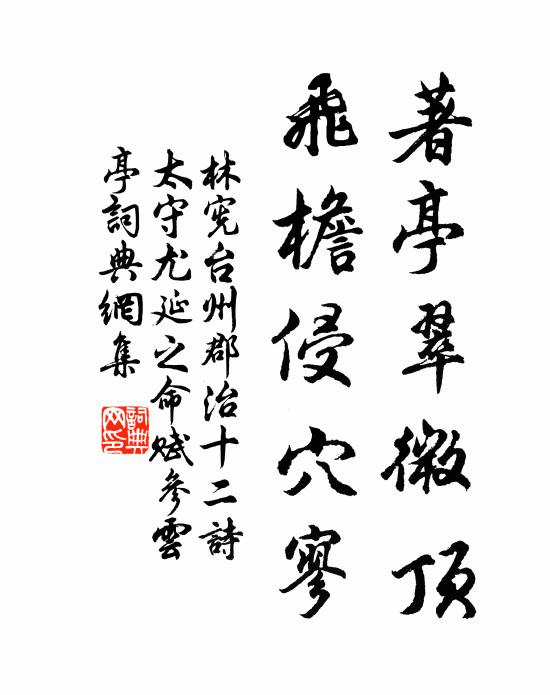 著亭翠微頂
飛檐侵穴寥
林宪台州郡治十二詩
太守尤延之命赋參雲
亭詞典網集
詞典网印